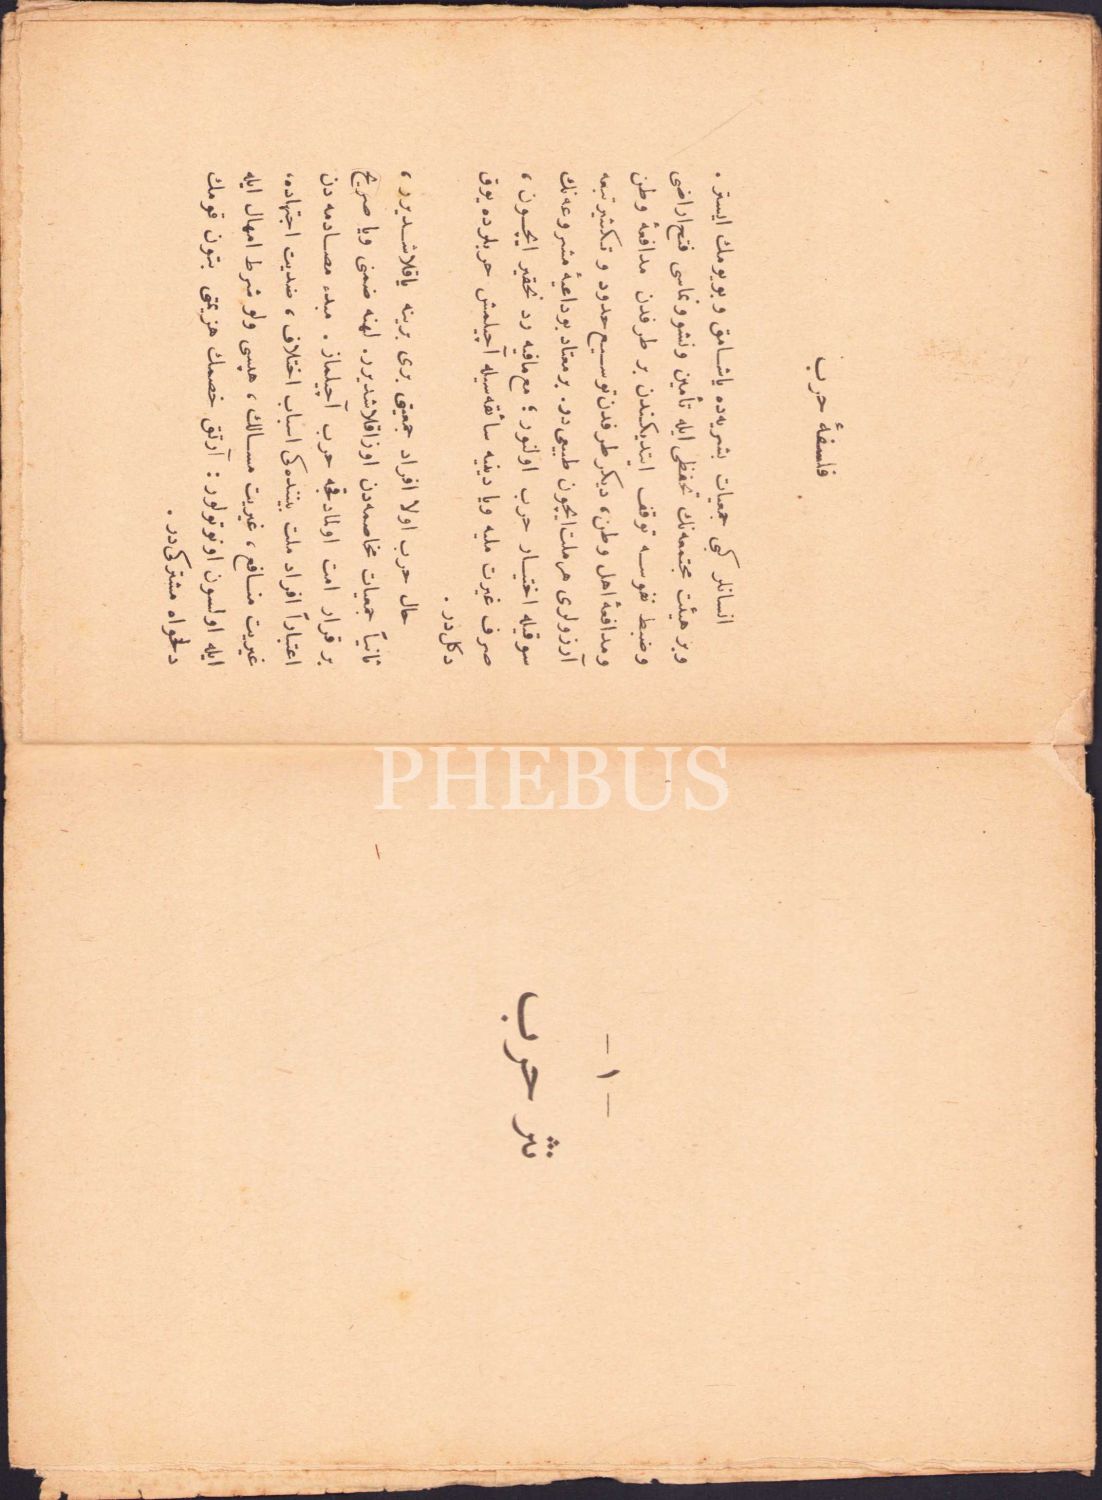 — ١ —
نثر حرب
فلسفهٔ حرب
انسانلر كبی جمعیات بشریه‌ده یاشامق و بویومك ایستر .
وبر هیئت مجتمعه‌نك تحفظی ایله تأمین ونشوونماسی فتح اراضی
وضبط نفوسه توقف ایتدیكندن بر طرفدن مدافعهٔ وطن
ومدافعهٔ اهل وطن، دیكر طرفدن توسیع حدود و تكثیر تبعه
آرزولری هر ملت ایچون طبیعی‌در. بر معتاد بو داعیهٔ مشروعه‌نك
سوقیله اختیار حرب اولنور ؛ مع‌مافیه رد تحقیر ایچون ،
صرف غیرت ملیه ویا دینیه سائقه‌سیله آچیلمش حربلرده یوق
دكلدر .
حال حرب اولا افراد جمعیتی بری برینه یاقلاشدیرر ،
ثانیاً جمعیات مخاصمه‌دن اوزاقلاشدیرر. لهنه ضمنی ویا صریح
بر قرار امت اولمادقجه حرب آچیلماز . مبدء مصادمه‌دن
اعتباراً افراد ملت بیننده‌كی اسباب اختلاف ، ضدیت اجتهاده،
غیریت منافع ، غیریت مسالك ، هپسی ولو شرط امهال ایله
ایله اولسون اونوتولور : آرتق خصمك هزیمتی بتون قومك
دلخواه مشتركی‌در .
PHEBUS